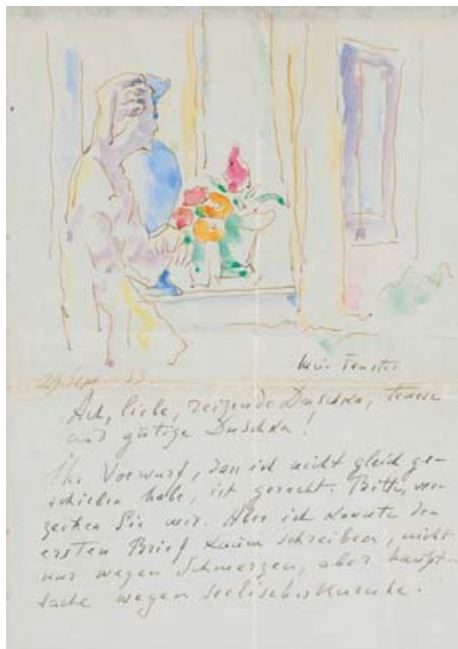 Mein Fenster
29. Sept.
Ach, liebe, reizende Duschka, teure
und gütige Duschka!
Ihr Vorwurf, dass ich nicht gleich ge-
schrieben habe, ist gerecht. Bitte, ver-
zeihen Sie mir. Aber ich konnte den
ersten Brief kaum schreiben, nicht
nur wegen Schmerzen, aber haupt-
sache wegen